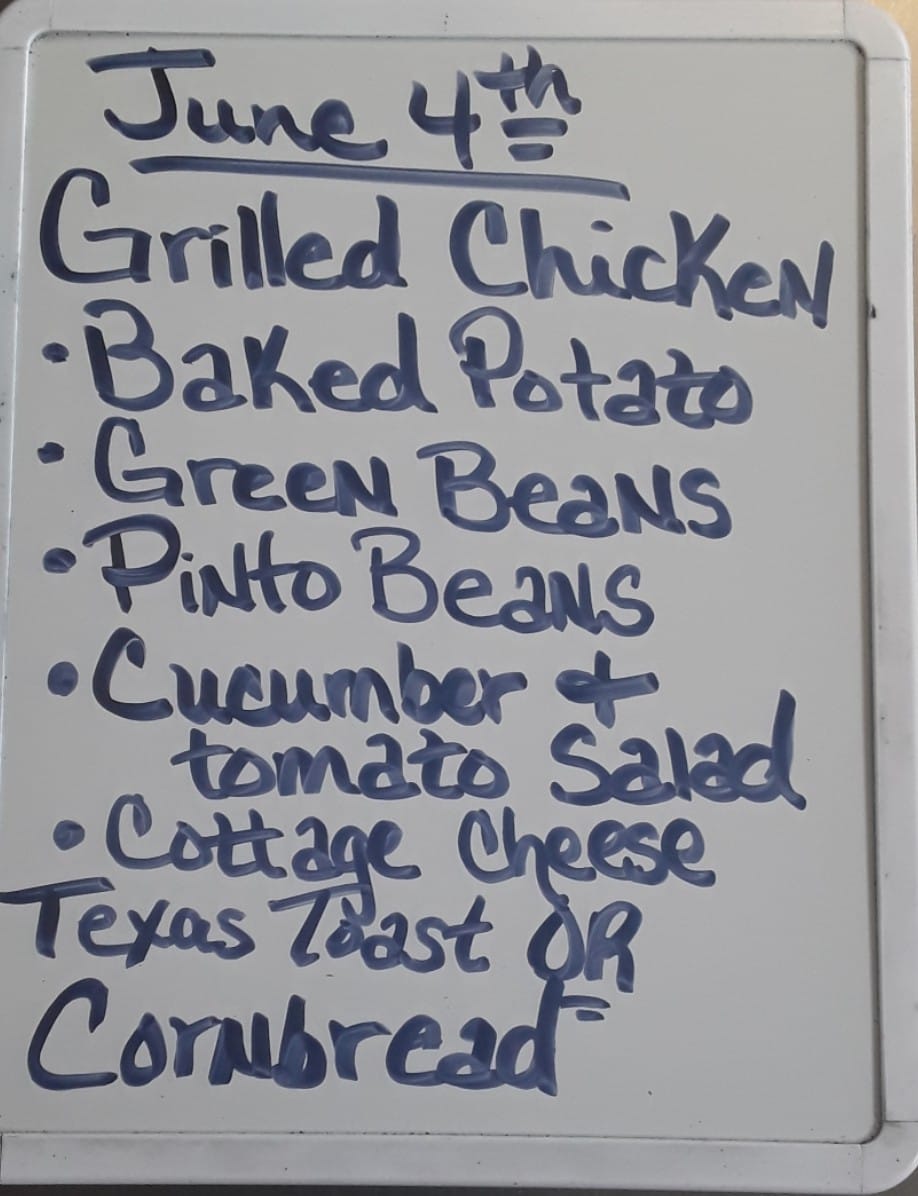 June 4th
Grilled Chicken
• Baked Potato
• Green Beans
• Pinto Beans
• Cucumber +
tomato Salad
• Cottage Cheese
Texas Toast OR
Cornbread